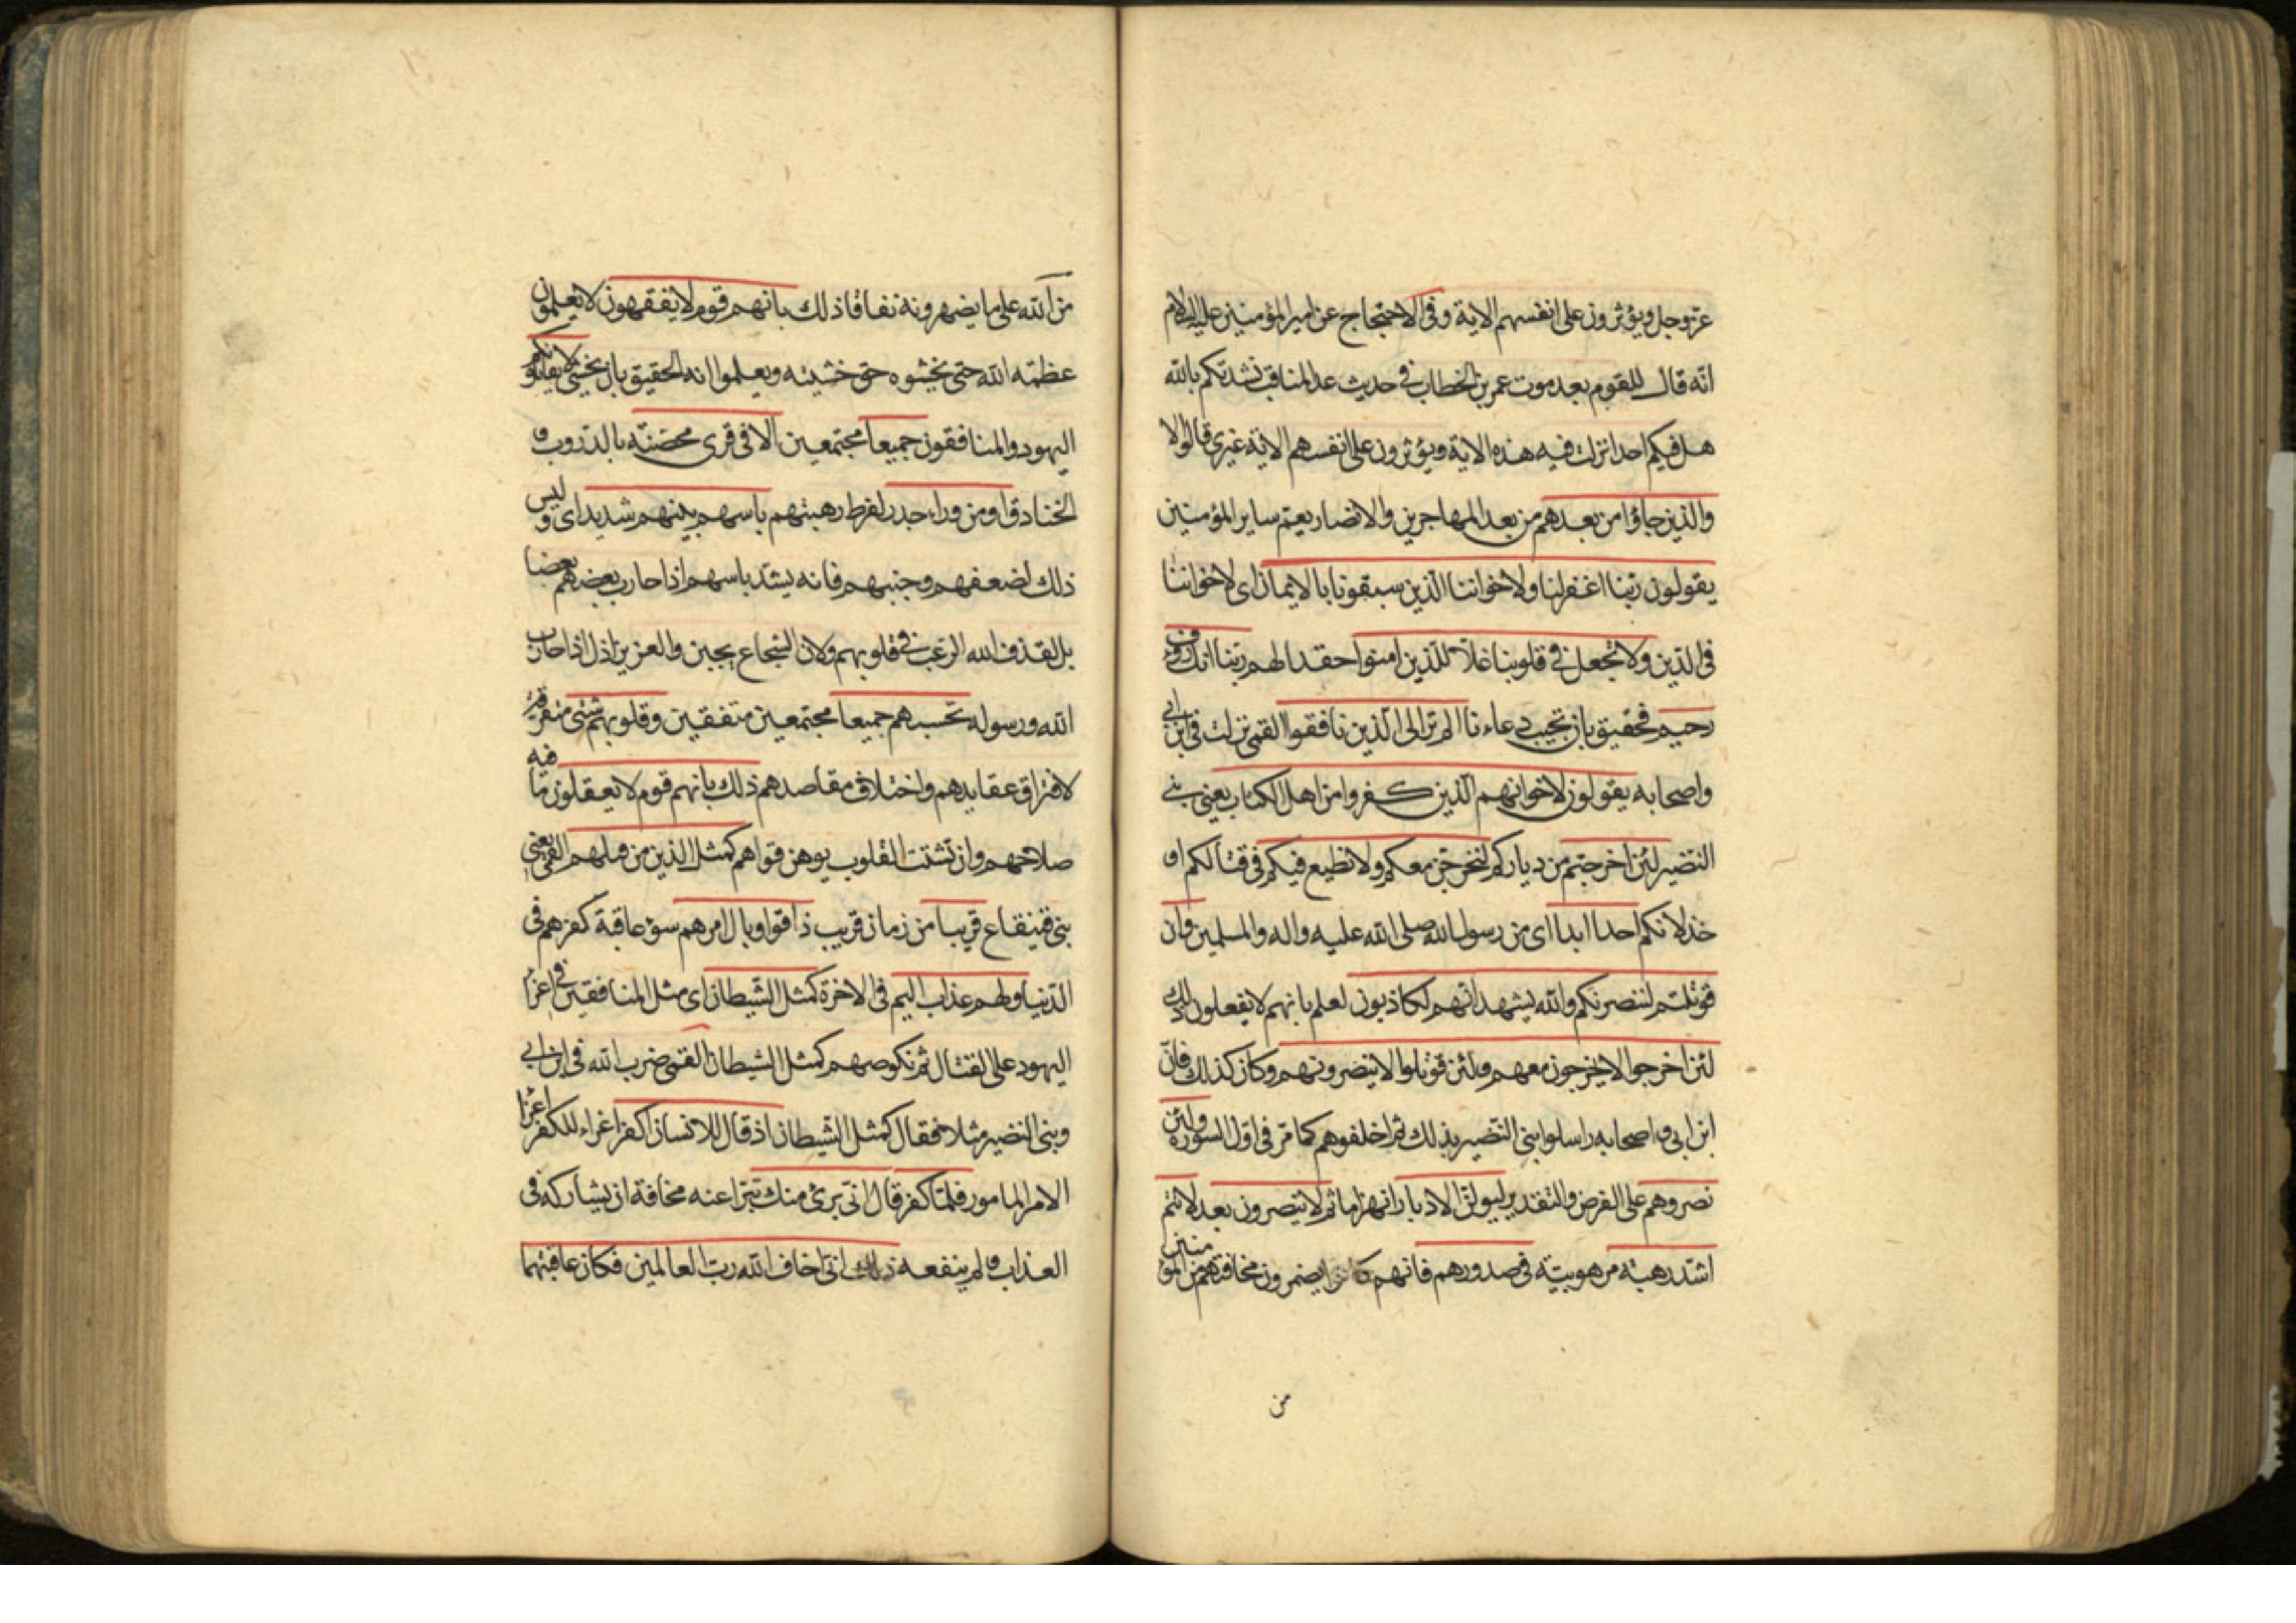 عزوجل ويؤثرون على انفسهم الاية وفى الاحتجاج عن امير المؤمنين عليه السلام
انه قال للقوم بعد موت عمر بن الخطاب فى حديث عد المناقب نشدتكم بالله
هل فيكم احد انزلت فيه هذه الاية ويؤثرون على انفسهم الاية غيرى قالوا لا
والذين جاؤا من بعدهم من بعد المهاجرين والانصار يعم ساير المؤمنين
يقولون ربنا اغفر لنا ولاخواننا الذين سبقونا بالايمان اى لاخواننا
فى الدين ولا تجعل فى قلوبنا غلا للذين امنوا حقدا لهم ربنا انك رؤف
رحيم فحقيق بان تجيب دعاءنا الم تر الى الذين نافقوا القمى نزلت فى ابن ابى
واصحابه يقولون لاخوانهم الذين كفروا من اهل الكتاب يعنى بنى
النضير لئن اخرجتم من دياركم لنخرجن معكم ولا نطيع فيكم فى قتالكم او
خذلانكم احدا ابدا اى من رسول الله صلى الله عليه واله والمسلمين وان
قوتلتم لننصرنكم والله يشهد انهم لكاذبون لعلم بانهم لا يفعلون ذلك
لئن اخرجوا لا يخرجون معهم ولئن قوتلوا لا ينصرونهم وكان كذلك فان
ابن ابى واصحابه راسلوا بنى النضير بذلك ثم اخلفوهم كما مر فى اول السورة ولئن
نصروهم على الفرض والتقدير ليولن الادبار انهزاما ثم لا ينصرون بعد لانتم
اشد رهبة مرهوبية فى صدورهم فانهم كانوا يضمرون مخافتهم من المؤمنين
من
من الله على ما يضهرونه نفاقا ذلك بانهم قوم لا يفقهون لا يعلمون
عظمة الله حتى يخشوه حق خشيته ويعلموا انه الحقيق بان يخشى لا يقاتلونكم
اليهود والمنافقون جميعا مجتمعين الا فى قرى محصنة بالدروب و
الخنادق او من وراء جدر لفرط رهبتهم باسهم بينهم شديد اى وليس
ذلك لضعفهم وجنبهم فانه يشتد باسهم اذا حارب بعضهم بعضا
بل لقذف الله الرعب فى قلوبهم ولان الشجاع يجبن والعزيز يذل اذا حارب
الله ورسوله تحسبهم جميعا مجتمعين متفقين وقلوبهم شتى متفرقة
لافتراق عقايدهم واختلاف مقاصدهم ذلك بانهم قوم لا يعقلون ما فيه
صلاحهم وان تشتت القلوب يوهن قواهم كمثل الذين من قبلهم القمى يعنى
بنى قينقاع قريبا من زمان قريب ذاقوا وبال امرهم سوء عاقبة كفرهم فى
الدنيا ولهم عذاب اليم فى الاخرة كمثل الشيطان اى مثل المنافقين فى اغراء
اليهود على القتال ثم نكوصهم كمثل الشيطان القمى ضرب الله فى ابن ابى
وبنى النضير مثلا فقال كمثل الشيطان اذ قال للانسان اكفر اغراء للكفر اغراء
الامر المامور فلما كفر قال انى برئ منك تبرا عنه مخافة ان يشاركه فى
العذاب ولم ينفعه ذلك انى اخاف الله رب العالمين فكان عاقبتهما